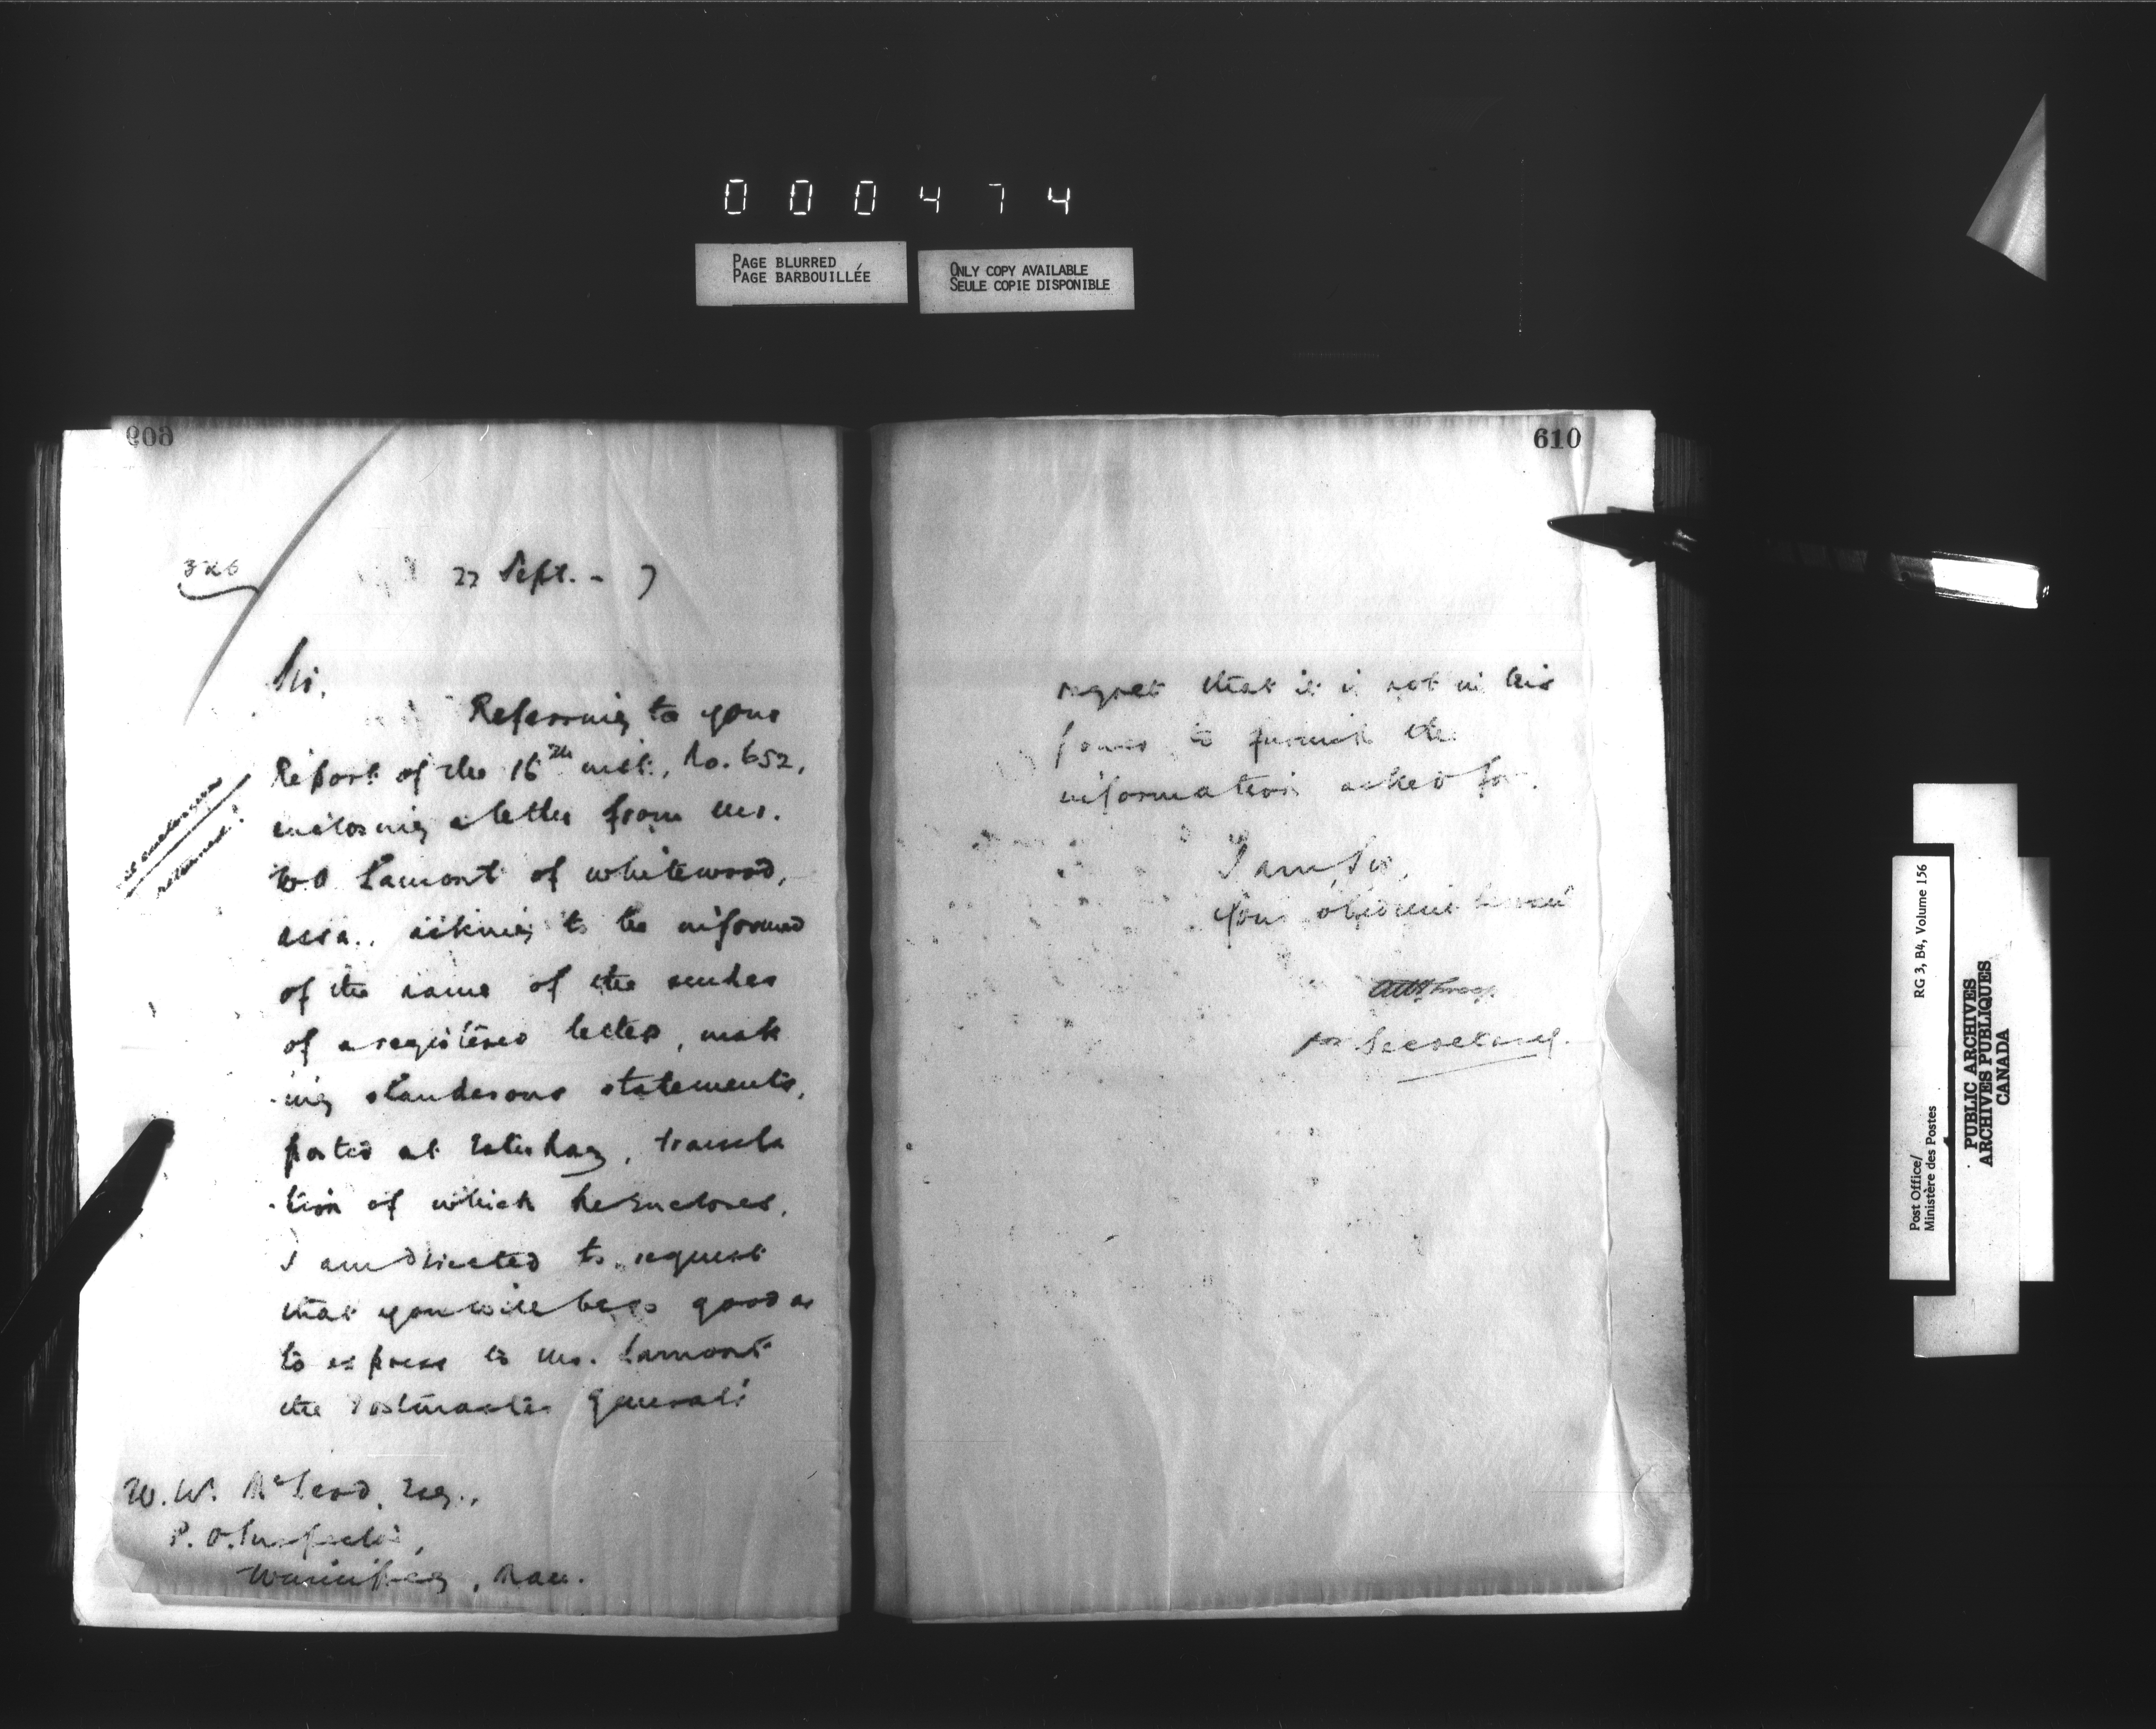 000474
PAGE BLURRED
PAGE BARBOUILLÉE
ONLY COPY AVAILABLE
SEULE COPIE DISPONIBLE
609
326
22 Sept. - 7
Sir,
Referring to your
Report of the 16th inst., No. 652,
enclosing a letter from Mr.
Lamont of Whitewood,
Assa., asking to be informed
of the name of the sender
of a registered letter, mak
-ing slanderous statements,
posted at Esterhazy, transla
-tion of which he encloses,
I am directed to request
that you will be so good as
to express to Mr. Lamont
the Postmaster General's
enclosures
returned.
W. W. McLeod, Esq.,
P. O. Inspector,
Winnipeg, Man.
610
regret that it is not in his
power to furnish the
information asked for.
I am, Sir,
Your obedient servant
for Secretary.
Post Office/
Ministère des Postes
RG 3, B4, Volume 156
PUBLIC ARCHIVES
ARCHIVES PUBLIQUES
CANADA